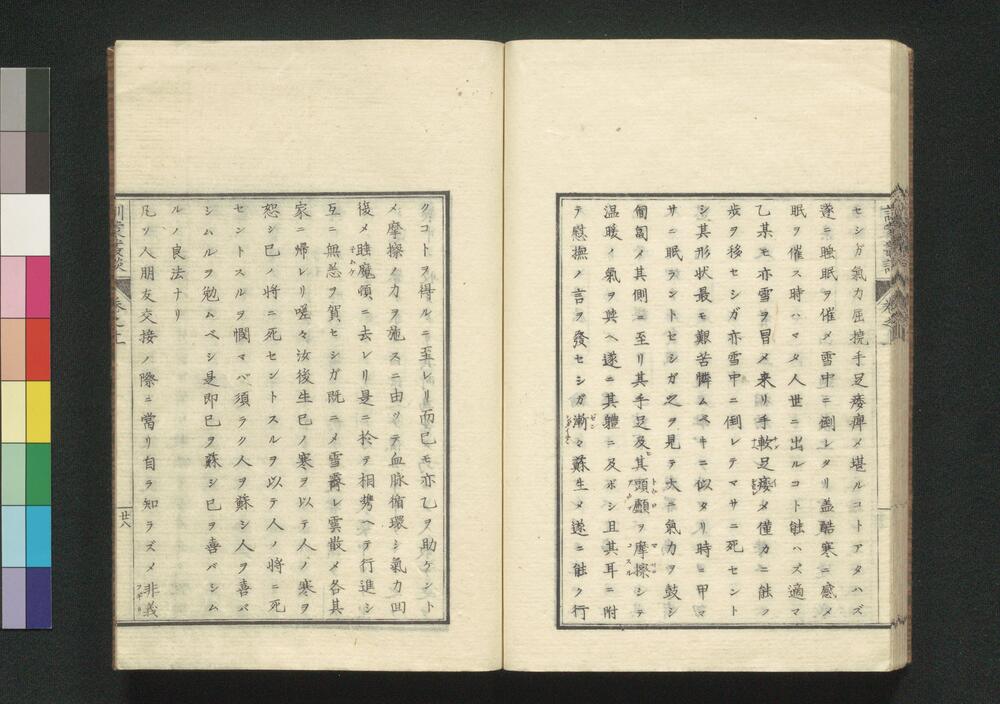 セシガ氣力屈撓手足痿痺メ堪ルコトアタハズ
遂ニ睡眠ヲ催メ雪中ニ倒レタリ盖酷寒ニ感メ
眠ヲ催ス時ハマタ人世ニ出ルコト能ハズ適マ
乙某モ亦雪ヲ冒メ来リ手軟足痿メ僅カニ能ノ
歩ヲ移セシガ亦雪中ニ倒レテマサニ死セント
シ其形状最モ艱苦憐ムベキニ似タリ時ニ甲マ
サニ眠ラントセシガ之ヲ見テ大ニ氣力ヲ鼓シ
匍匐メ其側ニ至リ其手足及其頭顱ヲ摩擦シテ
温暖ノ氣ヲ與ヘ遂ニ其軆ニ及ボシ且其耳ニ附
テ慰撫ノ言ヲ發セシガ漸々蘇生メ遂ニ能ク行
クコトヲ得ルニ至レリ而已モ亦乙ヲ助ケント
メ摩擦ノ力ヲ施スニ由ツテ血脉循環シ氣力回
復メ睡魔頓ニ去レリ是ニ於テ相携ヘテ行進シ
互ニ無恙ヲ賀セシガ既ニメ雪霽レ雲散メ各其
家ニ帰レリ嗟々汝後生已ノ寒ヲ以テ人ノ寒ヲ
恕シ已ノ将ニ死セントスルヲ以テ人ノ将ニ死
セントスルヲ憫マバ須ラク人ヲ蘇シ人ヲ喜バ
シムルヲ勉ムベシ是即已ヲ蘇シ已ヲ喜バシム
ルノ良法ナリ
凡ソ人朋友交接ノ際ニ當リ自ラ知ラズメ非義
廿八